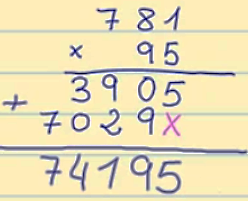 781
× 95
3905
+ 7029x
74195